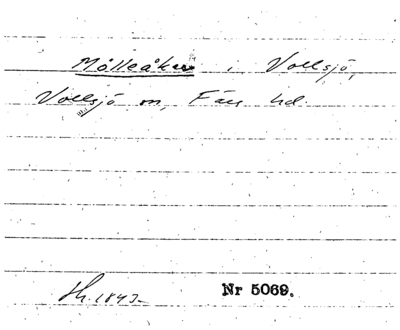 Mölleåker i Vollsjö,
Vollsjö sn, Färs hd.
Hy. 1843. Nr 5069.